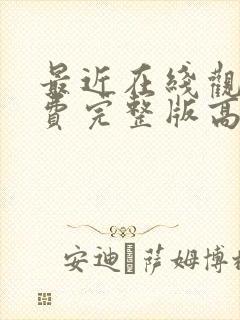 最近在线觀
費完整版高
安迪·萨姆博